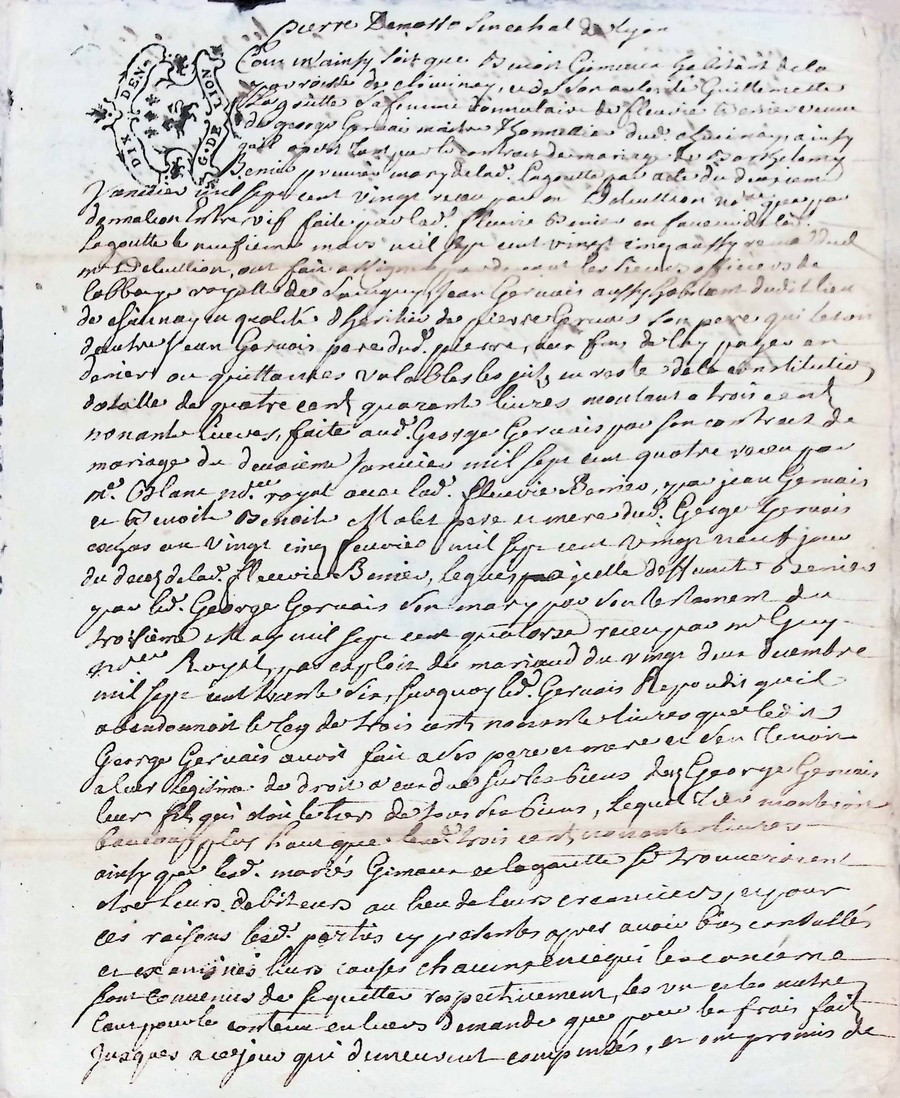 pierre Senechal de lyon
DIX DEN.
G. DE LION
Comm'ainsy soit que Benoit Gimeaux habitant de la
parroisse de et de son autorité Guillemette
Lagoutte sa femme donnataire de fleurie Benier veuve
de george Gervais maitre dud. ainsy
qu'il apert tant par le contrat de mariage de Barthelemy
Benier premier mary de lad. Lagoutte par acte du deuxieme
Janvier mil sept cent vingt receu par me Delullion no.re que par
donnation Entre vif faite par lad. fleurie Benier en faveur de lad.
Lagoutte le neufieme mars mil sept cent vingt cinq aussy receu dud.
me Delullion, ont fait assigner pardevant les sieurs officiers de
l'abbaye royalle de Savigny, Jean Gervais aussy habitant dudit lieu
de en qualité d'heritier de pierre Gervais son pere qui le
d'autre Jean Gervais pere dud. pierre, aux fins de luy payer en
deniers ou quittances valables les en reste de la constitution
dotalle de quatre cent quarante livres montant a trois cent
nonante livres, faite aud. George Gervais par son contrat de
mariage du deuxieme Janvier mil sept cent quatre receu par
me. Blanc no.re royal avec lad. fleurie Benier, par jean Gervais
et Benoite Malet pere et mere dud. George Gervais
au vingt cinq feuvrier mil sept cent vingt neuf jour
du deces de lad. fleurie Benier, legues a jcelle deffunte Benier
par led. George Gervais son mary par son testament du
troisieme May mil sept cent quatorze receu par me Guy
no.re Royal, par exploit de mariaud du vingt deux decembre
mil sept cent trante six, surquoy led. Gervais Repondit qu'il
abandonnoit le leg de trois cent nonante livres que ledit
George Gervais avoit fait a ses pere et mere et s'en tenoir
a leur legitime de droit a eux due sur les biens dud. George Gervais
leur fils qui doit le tier de tous ses biens, lequel tier monteroit
beaucoup plus haut que lesd. trois cent nonante livres
ainsy que lesd. mariés Gimaux et lagoutte se trouveroient
etre leurs debiteurs au lieu de leurs creanciers, et pour
ces raisons lesd. parties cy presentes apres avoir bien consultés
et examinés leurs causes chacun en ce qui les concerne
sont convenus de se quitter respectivement, les un et les autres
tant pour le contenu en leurs demande que pour les frais fait
jusques a ce jour qui demeurent compensés, et ont promis de